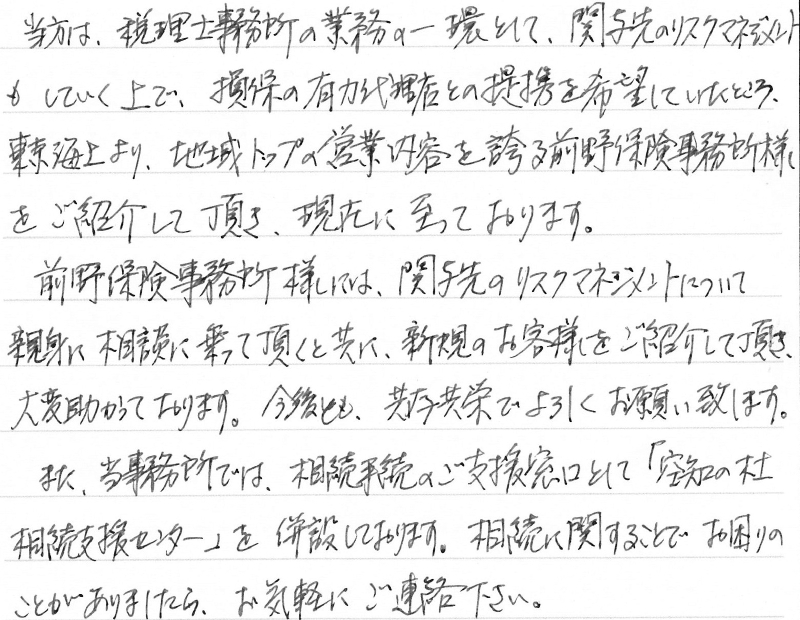 当方は、税理士事務所の業務の一環として、関与先のリスクマネジメント
もしていく上で、損保の有力代理店との提携を希望していたところ、
東京海上より、地域トップの営業内容を誇る前野保険事務所様
をご紹介して頂き、現在に至っております。
前野保険事務所様には、関与先のリスクマネジメントについて
親身に相談に乗って頂くと共に、新規のお客様をご紹介して頂き、
大変助かっております。今後とも、共存共栄でよろしくお願い致します。
また、当事務所では、相続手続のご支援窓口として「空知の杜
相続支援センター」を併設しております。相続に関することでお困りの
ことがありましたら、お気軽にご連絡下さい。